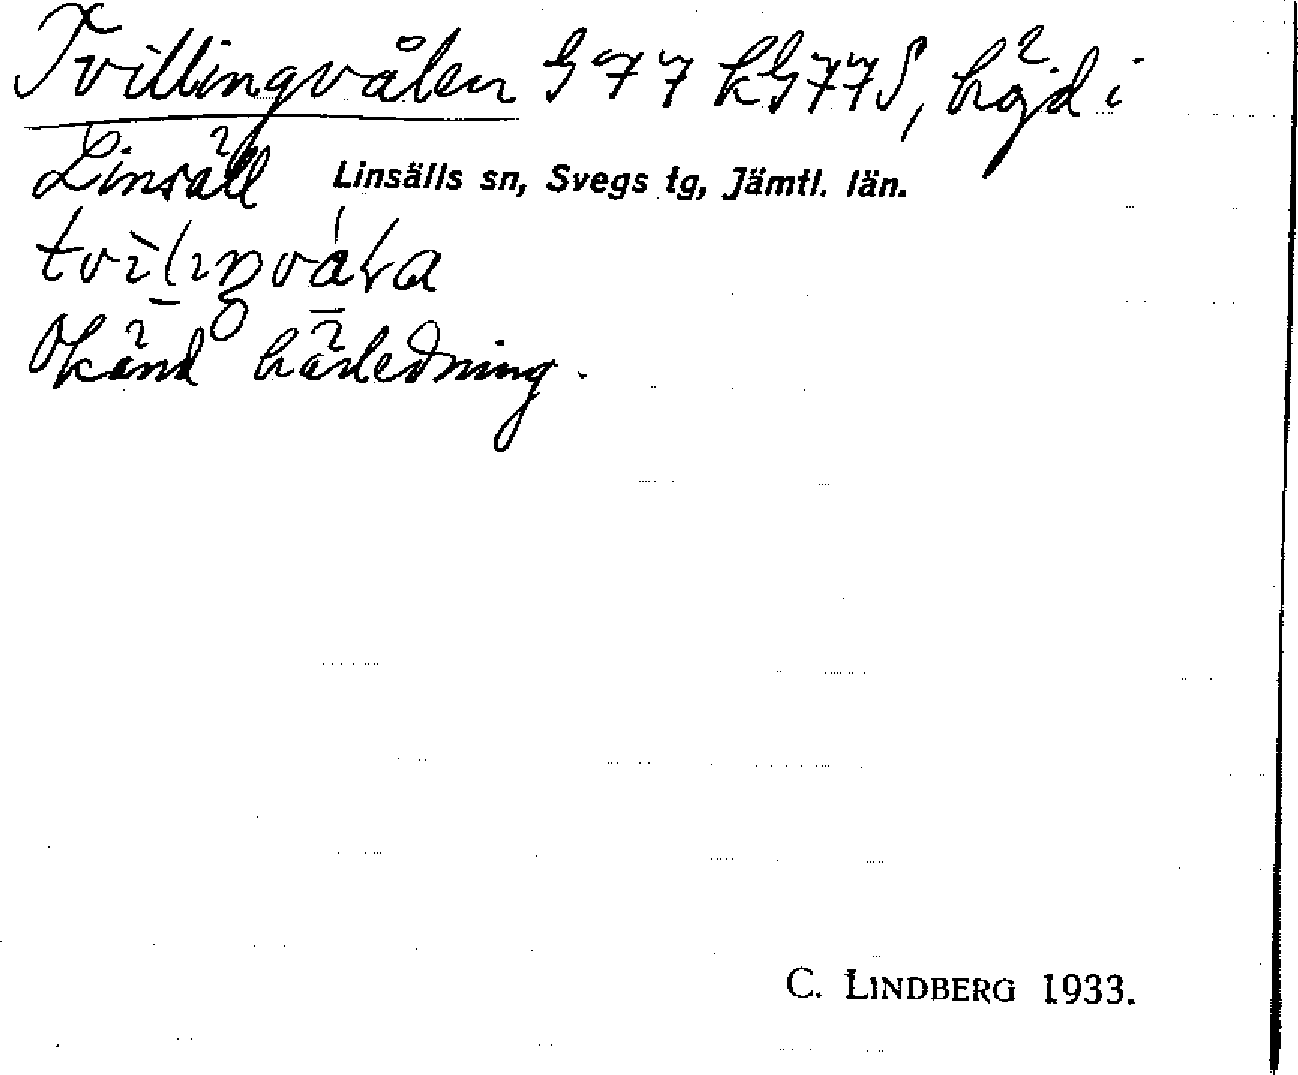 Tvillingvålen G77 kG77S, höjd i
Linsäll Linsälls sn, Svegs tg, Jämtl. län.
Okänd härledning.
C. LINDBERG 1933.